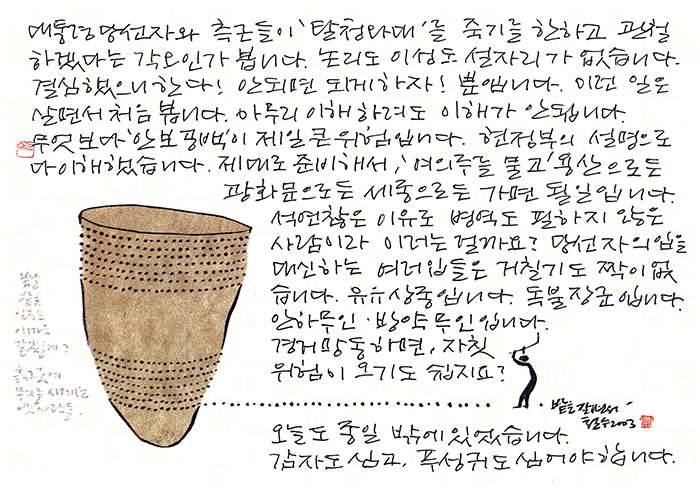 대통령당선자와 측근들이 '탈청와대'를 죽기를 한하고 관철
하겠다는 각오인가 봅니다. 논리도 이성도 설자리가 없습니다.
결심했으니한다! 안되면 되게하자! 뿐입니다. 이런 일은
살면서 처음 봅니다. 아무리 이해하려도 이해가 안됩니다.
무엇보다 '안보공백'이 제일 큰 위험입니다. 현정부의 설명으로
다 이해했습니다. 제대로 준비해서, '여의주를 물고' 용산으로든
광화문으로든 세종으로든 가면 될일입니다.
석연찮은 이유로 병역도 필하지 않은
사람이라 이러는걸까요? 당선자의 입을
대신하는 여러입들은 거칠기도 짝이없
습니다. 유유상종입니다. 독불장군입니다.
안하무인·방약무인입니다.
경거망동하면, 자칫
위험이 크기도 쉽지요?
봄날
밭을
일구는
이마음
같을까?
흙그릇에
무늬를 새기던
옛사람들.
밭을 갈면서
철수2003
오늘도 종일 밖에있었습니다.
감자도심고, 푸성귀도심어야합니다.